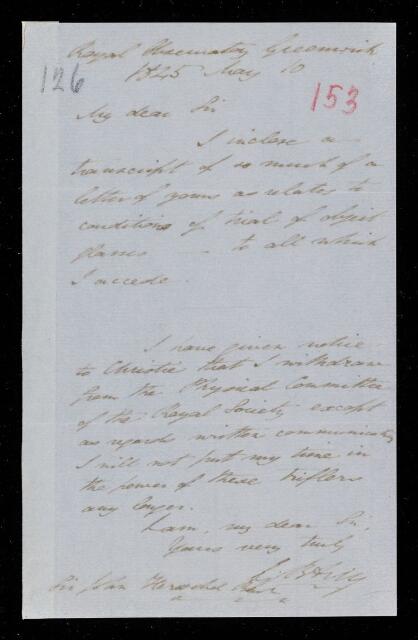 Royal Observatory Greenwich
1845 May 10
126
153
My dear Sir
I inclose a
transcript of so much of a
letter of yours as relates to
conditions of trial of object
glasses to all which
I accede.
I have given notice
to Christie that I withdraw
from the Physical Committee
of the Royal Society except
as regards written communication
I will not put my time in
the power of these triflers
any longer.
I am, my dear Sir,
Yours very truly
G B Airy
Sir John Herschel Bart